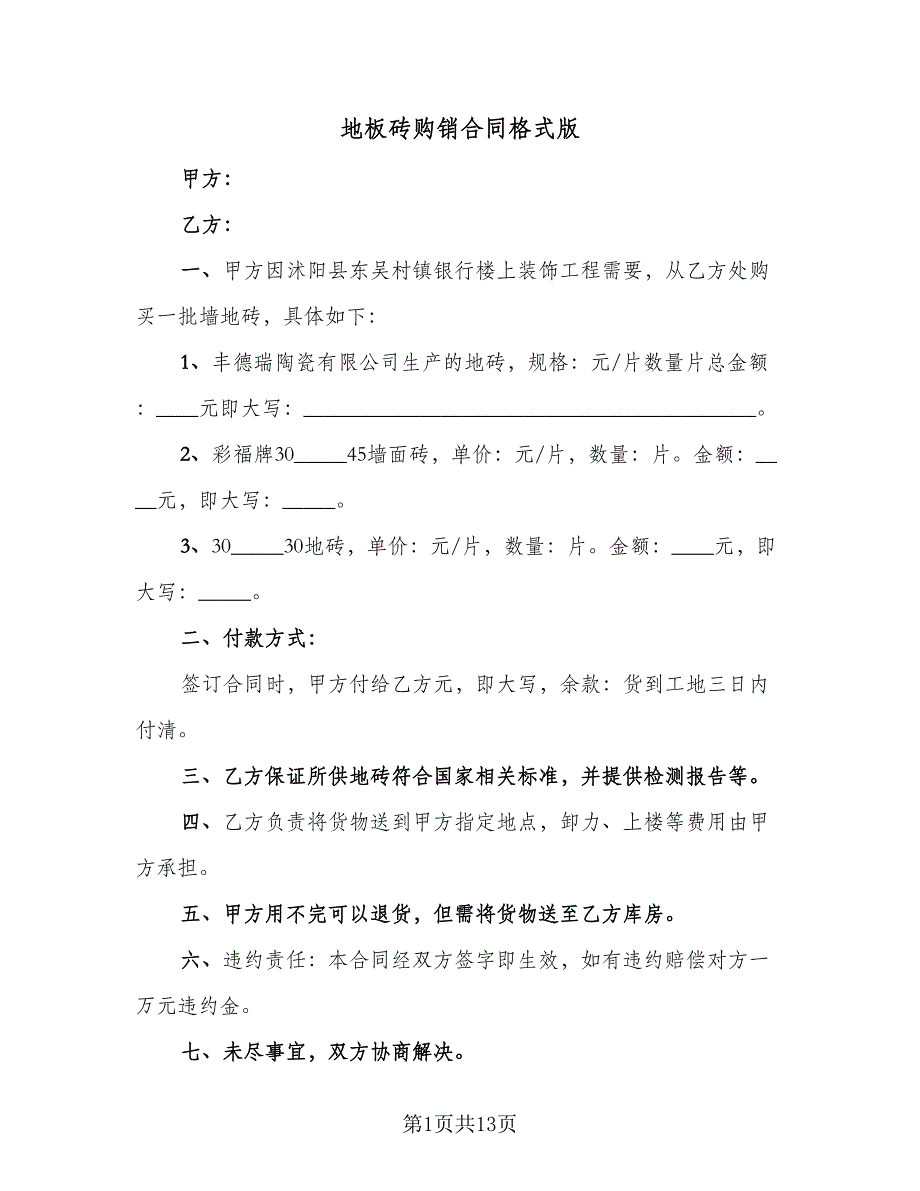 地板砖购销合同格式版
甲方：
乙方：
一、甲方因沭阳县东吴村镇银行楼上装饰工程需要，从乙方处购
买一批墙地砖，具体如下：
1、丰德瑞陶瓷有限公司生产的地砖，规格：元/片数量片总金额
：____元即大写：___________________________________________。
2、彩福牌30_____45墙面砖，单价：元/片，数量：片。金额：__
__元，即大写：_____。
3、30_____30地砖，单价：元/片，数量：片。金额：____元，即
大写：_____。
二、付款方式：
签订合同时，甲方付给乙方元，即大写，余款：货到工地三日内
付清。
三、乙方保证所供地砖符合国家相关标准，并提供检测报告等。
四、乙方负责将货物送到甲方指定地点，卸力、上楼等费用由甲
方承担。
五、甲方用不完可以退货，但需将货物送至乙方库房。
六、违约责任：本合同经双方签字即生效，如有违约赔偿对方一
万元违约金。
七、未尽事宜，双方协商解决。
第1页共13页